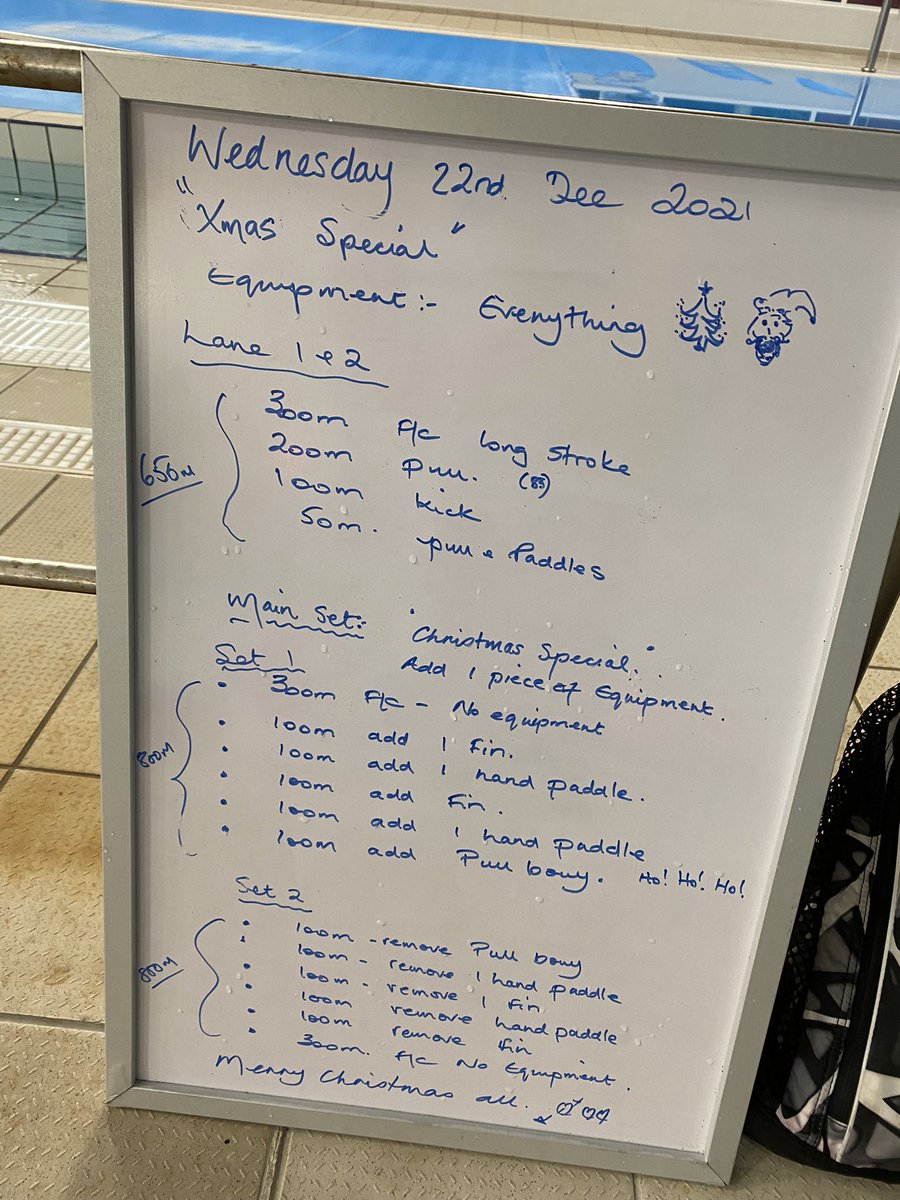 Wednesday 22nd. Dec 2021
"Xmas Special"
Equipment:- Everything
Lane 1 & 2
300m F/c long stroke
200m Pull. (B5)
100m kick
50m. pull & Paddles
650m
Main Set: "Christmas Special."
Set 1 Add 1 piece of Equipment.
• 300m F/c - No equipment
• 100m add 1 fin.
• 100m add 1 hand paddle.
• 100m add fin.
• 100m add 1 hand paddle
• 100m add Pull bouy. Ho! Ho! Ho!
800m
Set 2
• 100m - remove Pull bouy
• 100m - remove 1 hand paddle
• 100m - remove 1 fin
• 100m remove hand paddle
• 100m remove fin
• 300m. F/c No Equipment.
800m
Merry Christmas all.